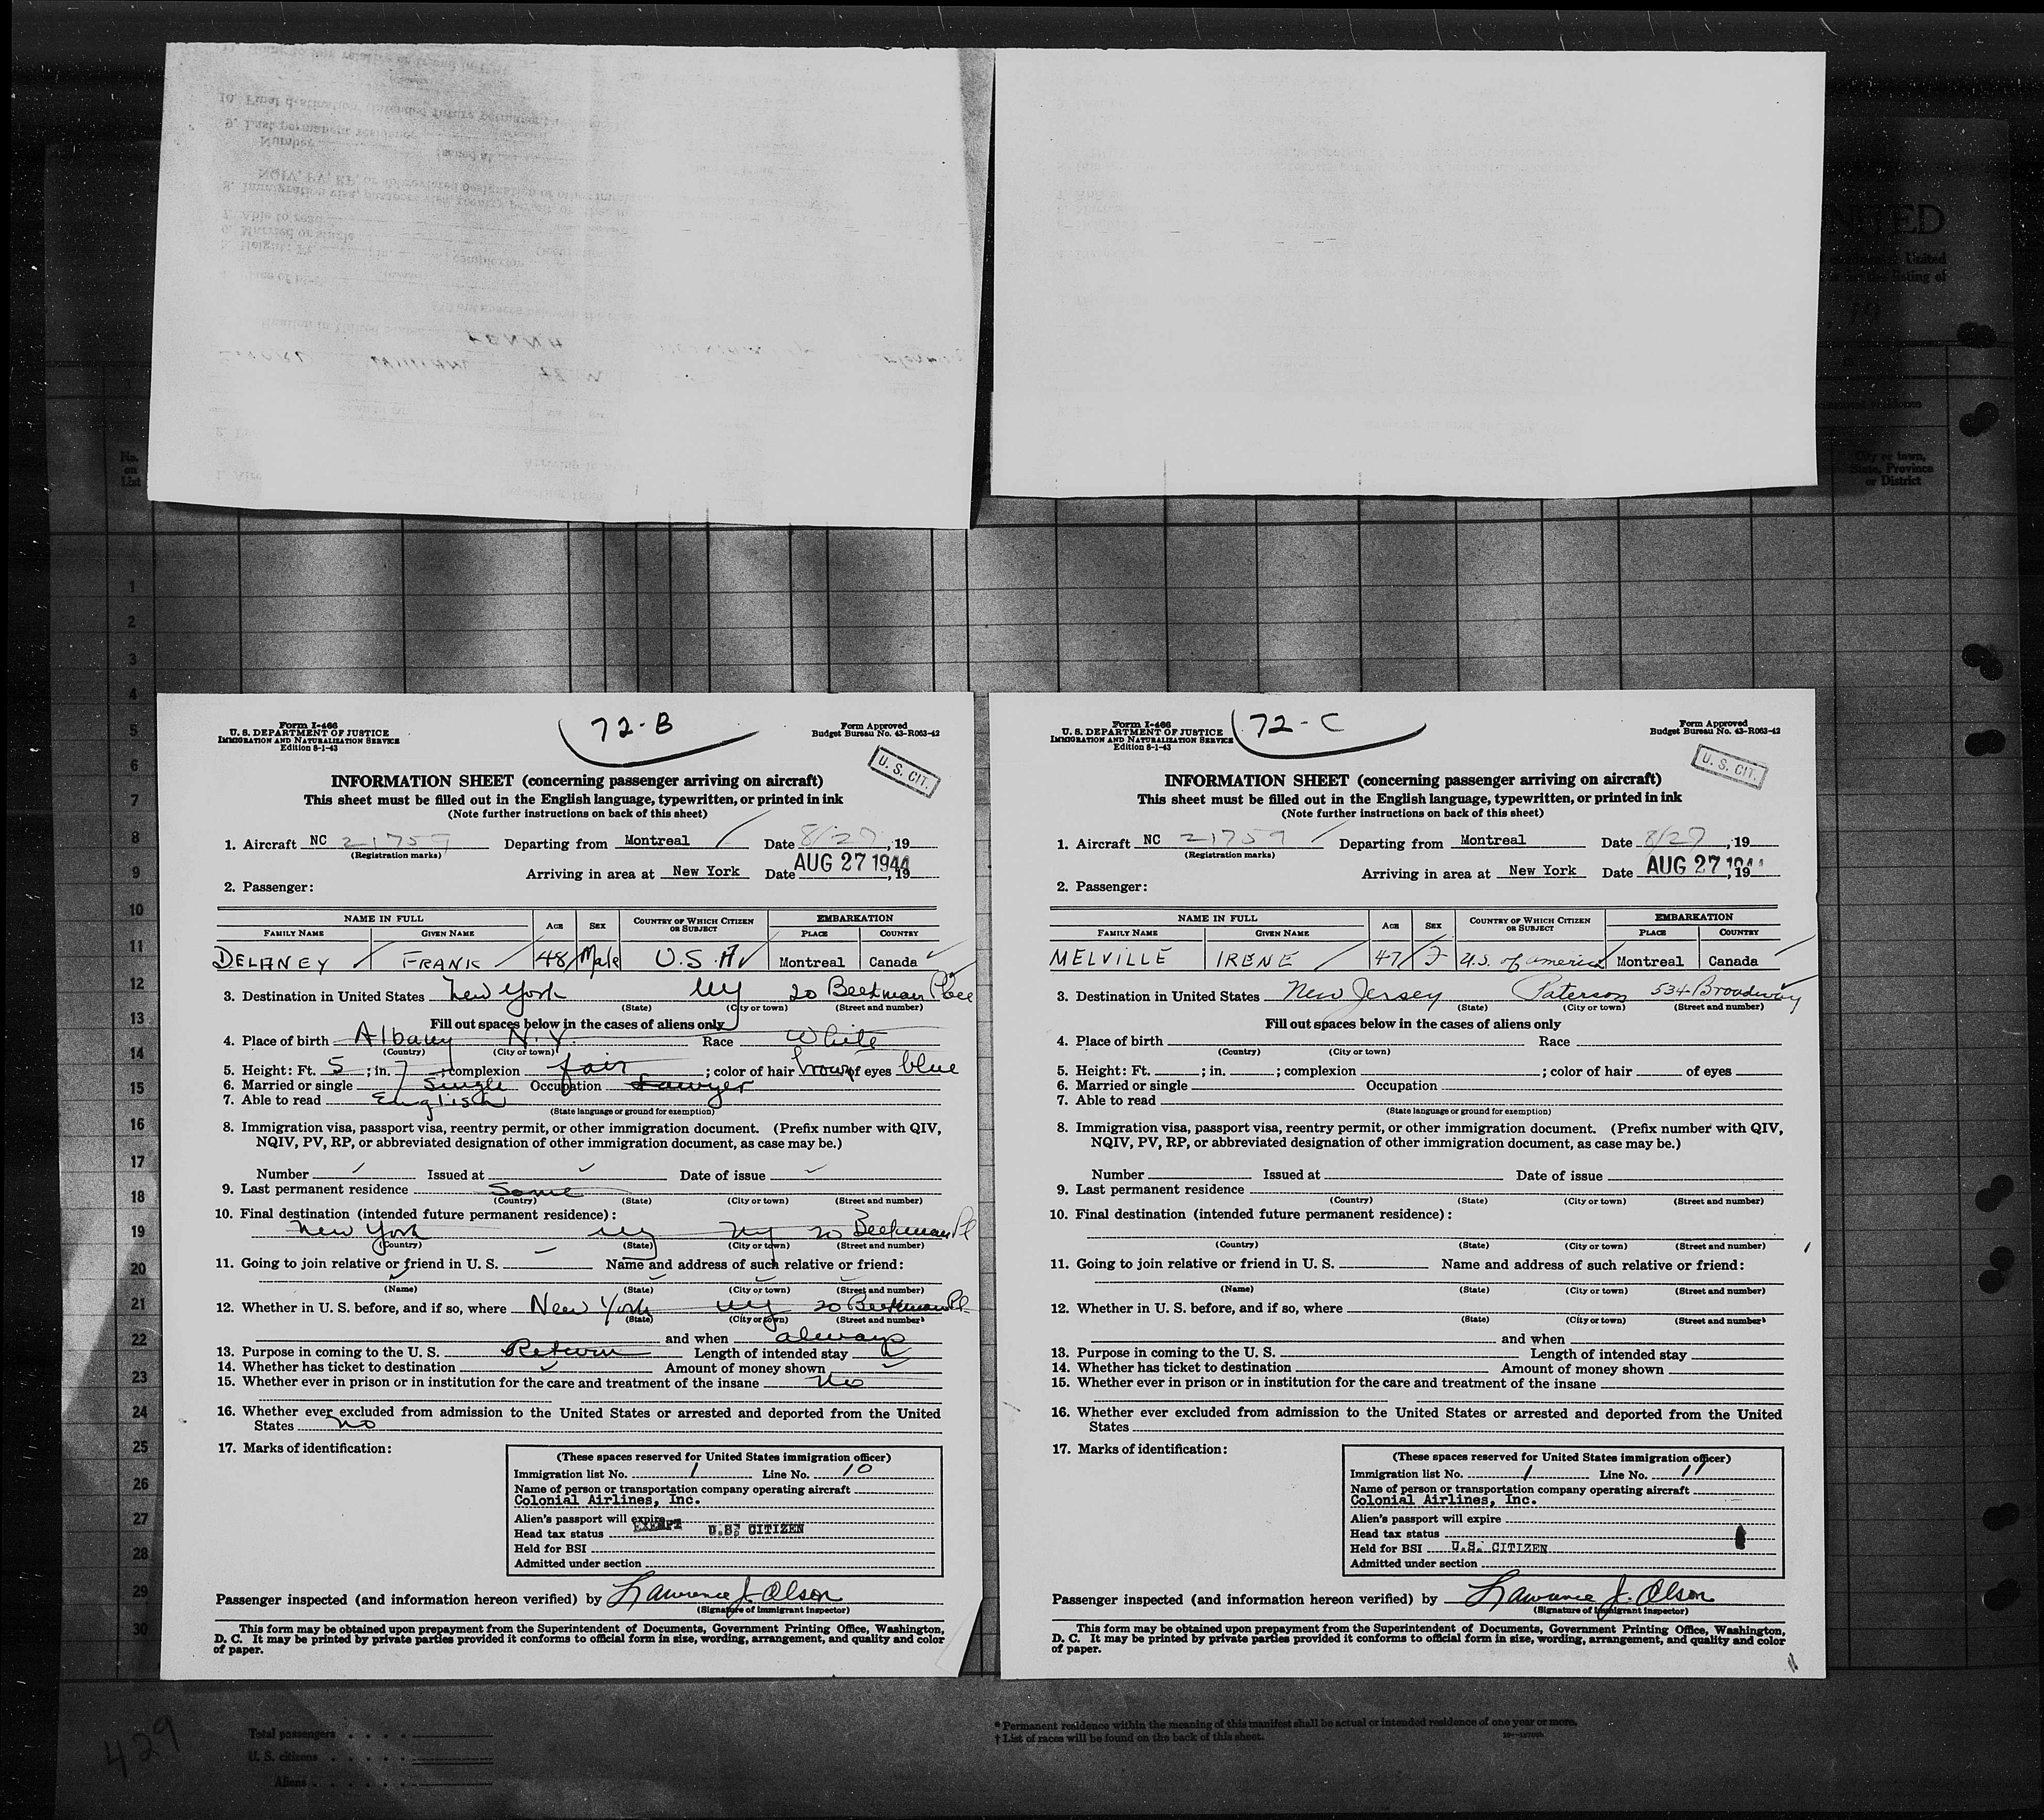 NTED
United
listing of
No.
on
List
City or town,
State, Province
or District
Form I-466
U. S. DEPARTMENT OF JUSTICE
IMMIGRATION AND NATURALIZATION SERVICE
Edition 8-1-43
72-B
Form Approved
Budget Bureau No. 43-R063-42
U. S. CIT.
INFORMATION SHEET (concerning passenger arriving on aircraft)
This sheet must be filled out in the English language, typewritten, or printed in ink
(Note further instructions on back of this sheet)
1. Aircraft NC 21759 Departing from Montreal Date 8/27, 19
(Registration marks)
Arriving in area at New York Date AUG 27 1944, 19
2. Passenger:
NAME IN FULL AGE SEX COUNTRY OF WHICH CITIZEN OR SUBJECT EMBARKATION
FAMILY NAME GIVEN NAME PLACE COUNTRY
DELANEY FRANK 48 Male U.S.A. Montreal Canada
3. Destination in United States New York NY 20 Beekman Place
(State) (City or town) (Street and number)
Fill out spaces below in the cases of aliens only
4. Place of birth Albany N.Y. Race White
(Country) (City or town)
5. Height: Ft. 5; in. 7; complexion fair; color of hair brown of eyes blue
6. Married or single Single Occupation Lawyer
7. Able to read English
(State language or ground for exemption)
8. Immigration visa, passport visa, reentry permit, or other immigration document. (Prefix number with QIV,
NQIV, PV, RP, or abbreviated designation of other immigration document, as case may be.)
Number Issued at Date of issue
9. Last permanent residence Same
(Country) (State) (City or town) (Street and number)
10. Final destination (intended future permanent residence):
New York NY NY 20 Beekman Pl
(Country) (State) (City or town) (Street and number)
11. Going to join relative or friend in U. S. — Name and address of such relative or friend:
(Name) (State) (City or town) (Street and number)
12. Whether in U. S. before, and if so, where New York NY 20 Beekman Pl
(State) (City or town) (Street and number)
and when always
13. Purpose in coming to the U. S. Return Length of intended stay
14. Whether has ticket to destination Amount of money shown
15. Whether ever in prison or in institution for the care and treatment of the insane No
16. Whether ever excluded from admission to the United States or arrested and deported from the United
States No
17. Marks of identification:
(These spaces reserved for United States immigration officer)
Immigration list No. 1 Line No. 10
Name of person or transportation company operating aircraft
Colonial Airlines, Inc.
Alien's passport will expire
Head tax status EXEMPT U.S. CITIZEN
Held for BSI
Admitted under section
Passenger inspected (and information hereon verified) by Lawrence J. Olson
(Signature of immigrant inspector)
This form may be obtained upon prepayment from the Superintendent of Documents, Government Printing Office, Washington,
D. C. It may be printed by private parties provided it conforms to official form in size, wording, arrangement, and quality and color
of paper.
Form I-466
U. S. DEPARTMENT OF JUSTICE
IMMIGRATION AND NATURALIZATION SERVICE
Edition 8-1-43
72-C
Form Approved
Budget Bureau No. 43-R063-42
U. S. CIT.
INFORMATION SHEET (concerning passenger arriving on aircraft)
This sheet must be filled out in the English language, typewritten, or printed in ink
(Note further instructions on back of this sheet)
1. Aircraft NC 21759 Departing from Montreal Date 8/27, 19
(Registration marks)
Arriving in area at New York Date AUG 27 1944, 19
2. Passenger:
NAME IN FULL AGE SEX COUNTRY OF WHICH CITIZEN OR SUBJECT EMBARKATION
FAMILY NAME GIVEN NAME PLACE COUNTRY
MELVILLE IRENE 47 F U.S. of America Montreal Canada
3. Destination in United States New Jersey Paterson 534 Broadway
(State) (City or town) (Street and number)
Fill out spaces below in the cases of aliens only
4. Place of birth Race
(Country) (City or town)
5. Height: Ft. ; in. ; complexion ; color of hair of eyes
6. Married or single Occupation
7. Able to read
(State language or ground for exemption)
8. Immigration visa, passport visa, reentry permit, or other immigration document. (Prefix number with QIV,
NQIV, PV, RP, or abbreviated designation of other immigration document, as case may be.)
Number Issued at Date of issue
9. Last permanent residence
(Country) (State) (City or town) (Street and number)
10. Final destination (intended future permanent residence):
(Country) (State) (City or town) (Street and number)
11. Going to join relative or friend in U. S. Name and address of such relative or friend:
(Name) (State) (City or town) (Street and number)
12. Whether in U. S. before, and if so, where
(State) (City or town) (Street and number)
and when
13. Purpose in coming to the U. S. Length of intended stay
14. Whether has ticket to destination Amount of money shown
15. Whether ever in prison or in institution for the care and treatment of the insane
16. Whether ever excluded from admission to the United States or arrested and deported from the United
States
17. Marks of identification:
(These spaces reserved for United States immigration officer)
Immigration list No. 1 Line No. 11
Name of person or transportation company operating aircraft
Colonial Airlines, Inc.
Alien's passport will expire
Head tax status
Held for BSI U.S. CITIZEN
Admitted under section
Passenger inspected (and information hereon verified) by Lawrence J. Olson
(Signature of immigrant inspector)
This form may be obtained upon prepayment from the Superintendent of Documents, Government Printing Office, Washington,
D. C. It may be printed by private parties provided it conforms to official form in size, wording, arrangement, and quality and color
of paper.
1
2
3
4
5
6
7
8
9
10
11
12
13
14
15
16
17
18
19
20
21
22
23
24
25
26
27
28
29
30
429
Total passengers
U. S. citizens
Aliens
* Permanent residence within the meaning of this manifest shall be actual or intended residence of one year or more.
† List of races will be found on the back of this sheet.